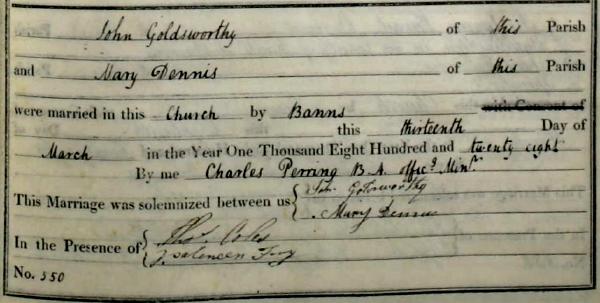 John Goldsworthy of this Parish
and Mary Dennis of this Parish
were married in this Church by Banns with Consent of
this thirteenth Day of
March in the Year One Thousand Eight Hundred and twenty eight
By me Charles Perring B.A. offic.g Min.r
This Marriage was solemnized between us { John Goldsworthy
Mary Dennis
In the Presence of { Tho.s Coles
No. 350